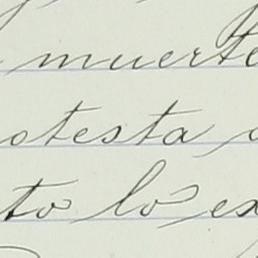 muerte
otesta
to lo ex